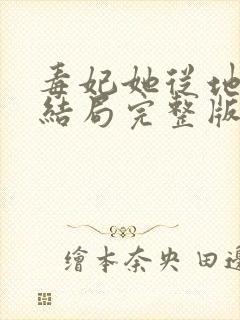 毒妃她從地
結局完整版
繪本奈央 田邊